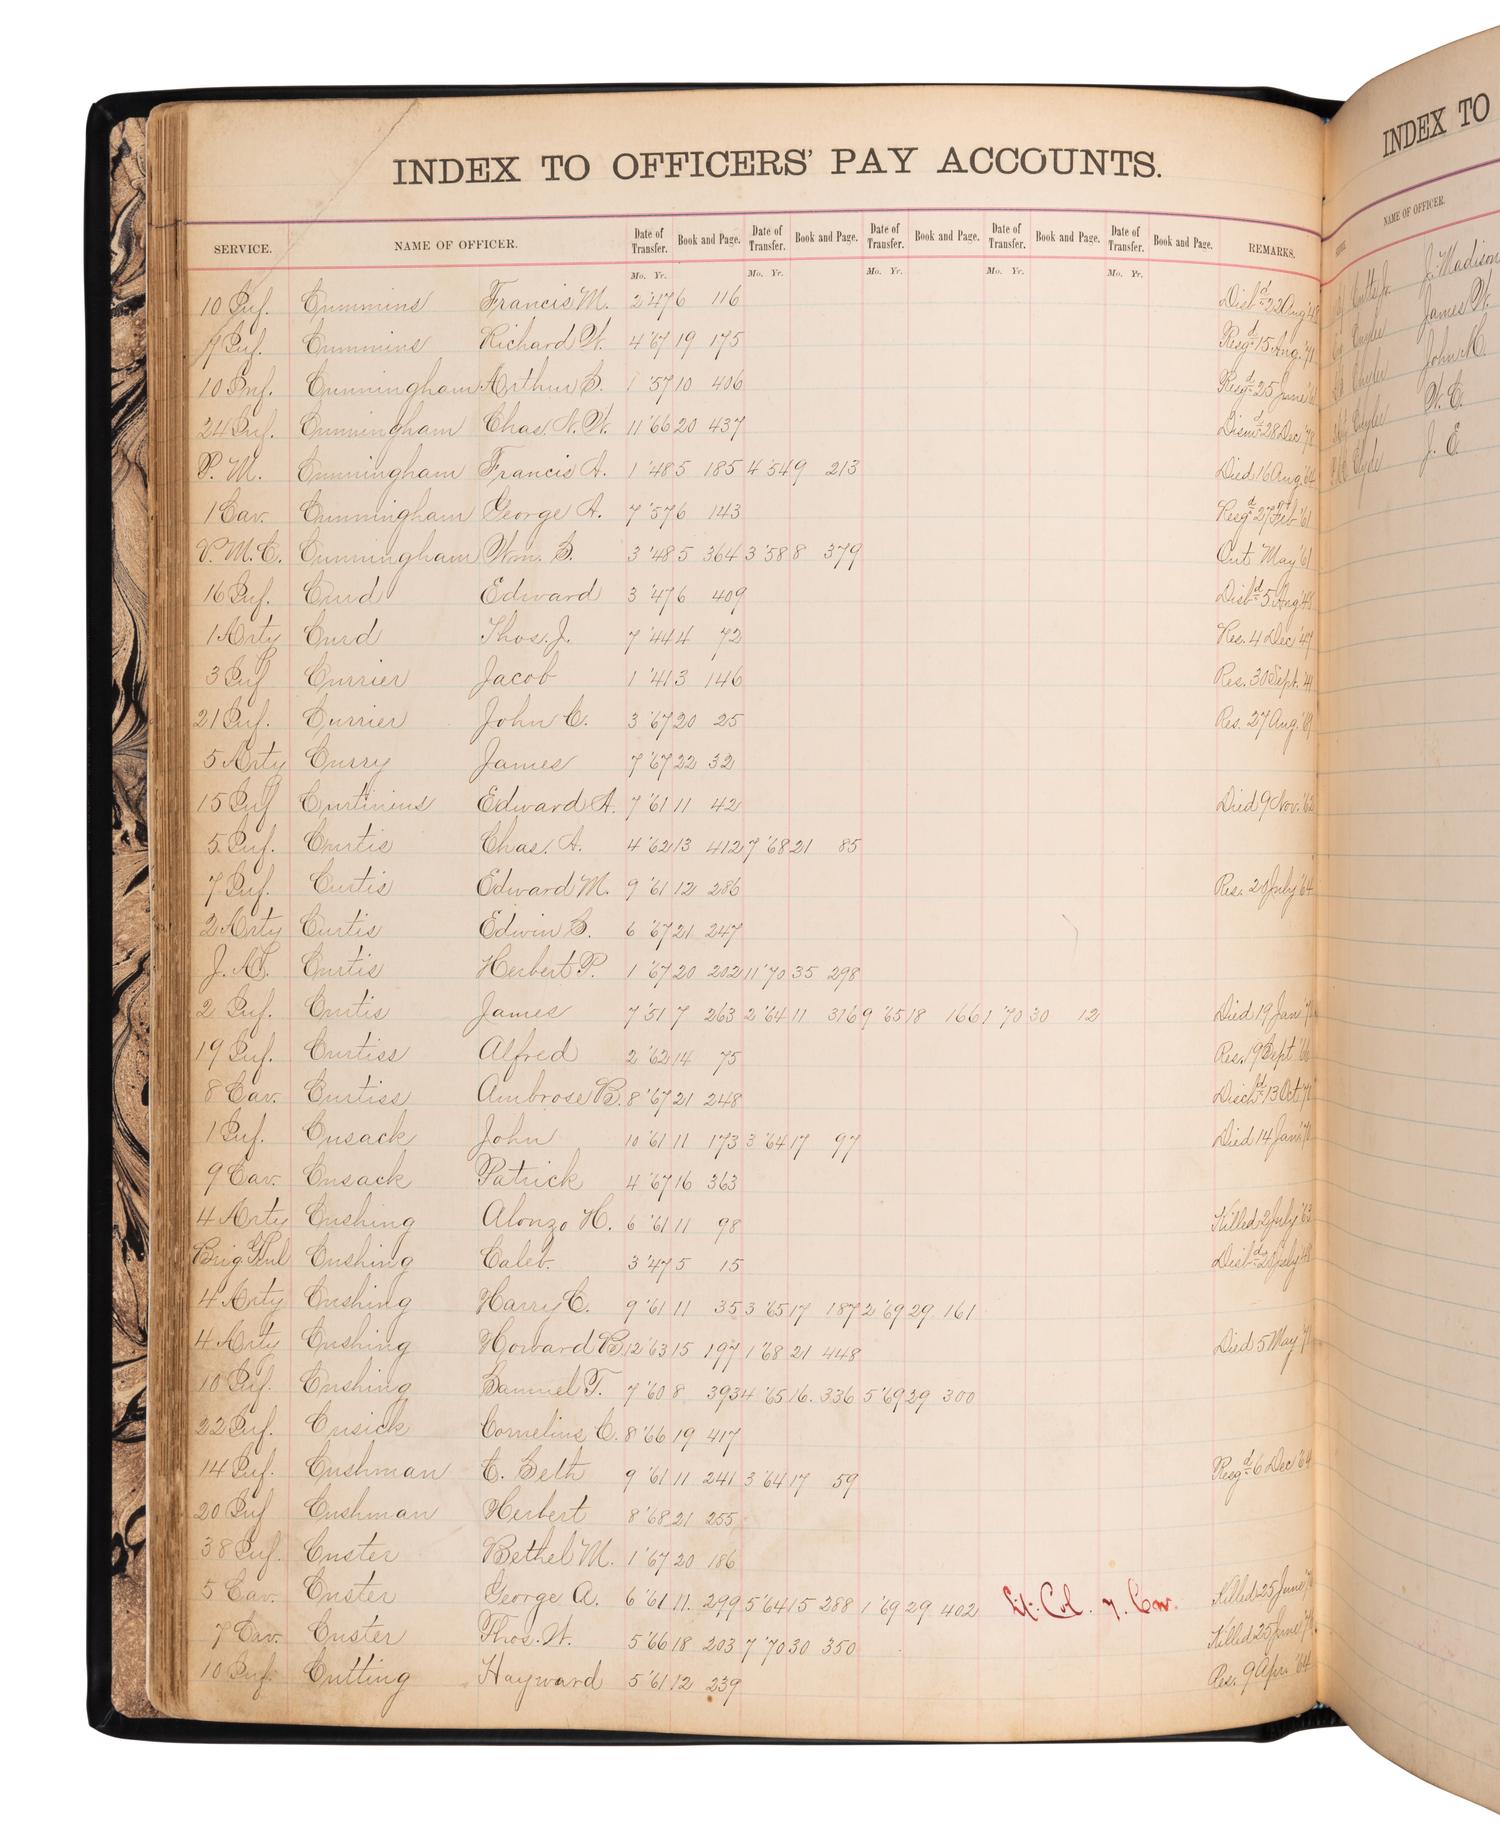 INDEX TO OFFICERS' PAY ACCOUNTS.
SERVICE. NAME OF OFFICER. Date of Transfer. Book and Page. Date of Transfer. Book and Page. Date of Transfer. Book and Page. Date of Transfer. Book and Page. Date of Transfer. Book and Page. REMARKS.
Mo. Yr. Mo. Yr. Mo. Yr. Mo. Yr. Mo. Yr.
10 Inf. Cummins Francis M. 2 '47 6 116 Disbd 22 Aug '48
7 Inf. Cummins Richard W. 4 '67 19 175 Resgd 15 Aug. '71
10 Inf. Cunningham Arthur S. 1 '57 10 406 Resgd 25 June '61
24 Inf. Cunningham Chas. N. W. 11 '66 20 437 Dismd 28 Dec. '70
P. M. Cunningham Francis A. 1 '48 5 185 4 '54 9 213 Died 16 Aug. '64
1 Cav. Cunningham George A. 7 '57 6 143 Resgd 27 Feb '61
P. M. C. Cunningham Wm. S. 3 '48 5 364 3 '58 8 379 Out May '61
16 Inf. Curd Edward 3 '47 6 409 Disbd 5 Aug '48
1 Arty Curd Thos. J. 7 '44 4 72 Res. 4 Dec '47
3 Inf Currier Jacob 1 '41 3 146 Res. 30 Sept. '41
21 Inf. Currier John C. 3 '67 20 25 Res. 27 Aug. '69
5 Arty Curry James 7 '67 22 32
15 Inf Curtinius Edward A. 7 '61 11 42 Died 9 Nov. '62
5 Inf. Curtis Chas. A. 4 '62 13 412 7 '68 21 85
7 Inf. Curtis Edward M. 9 '61 12 286 Res. 20 July '64
2 Arty Curtis Edwin S. 6 '67 21 247
J. A. Curtis Herbert P. 1 '67 20 202 11 '70 35 298
2 Inf. Curtis James 7 '51 7 263 2 '64 11 316 9 '65 18 166 1 '70 30 12 Died 19 Jan
19 Inf. Curtiss Alfred 2 '62 14 75 Res. 19 Sept '66
8 Cav. Curtiss Ambrose B. 8 '67 21 248 Dischd 13 Oct '70
1 Inf. Cusack John 10 '61 11 173 3 '64 17 97 Died 14 Jan.
9 Cav. Cusack Patrick 4 '67 16 363
4 Arty Cushing Alonzo H. 6 '61 11 98 Killed 2 July '63
Brig Genl Cushing Caleb. 3 '47 5 15 Disbd 20 July '48
4 Arty Cushing Harry C. 9 '61 11 35 3 '65 17 187 2 '69 29 161
4 Arty Cushing Howard B. 12 '63 15 197 1 '68 21 448 Died 5 May '71
10 Inf. Cushing Samuel T. 7 '60 8 393 4 '65 16. 336 5 '69 29 300
22 Inf. Cusick Cornelius C. 8 '66 19 417
14 Inf. Cushman C. Seth 9 '61 11 241 3 '64 17 59 Resgd 6 Dec '64
20 Inf Cushman Herbert 8 '68 21 255
38 Inf. Custer Bethel M. 1 '67 20 186
5 Cav. Custer George A. 6 '61 11. 299 5 '64 15 288 1 '69 29 402 Lt. Col. 7. Cav. Killed 25 June '76
7 Cav. Custer Thos. W. 5 '66 18 203 7 '70 30 350 Killed 25 June '76
10 Inf. Cutting Hayward 5 '61 12 239 Res. 9 Apr. '64
INDEX TO
NAME OF OFFICER.
J. Madison
Cuyler James W.
Cuyler John M.
Cuyler W. C.
Clyde J. E.